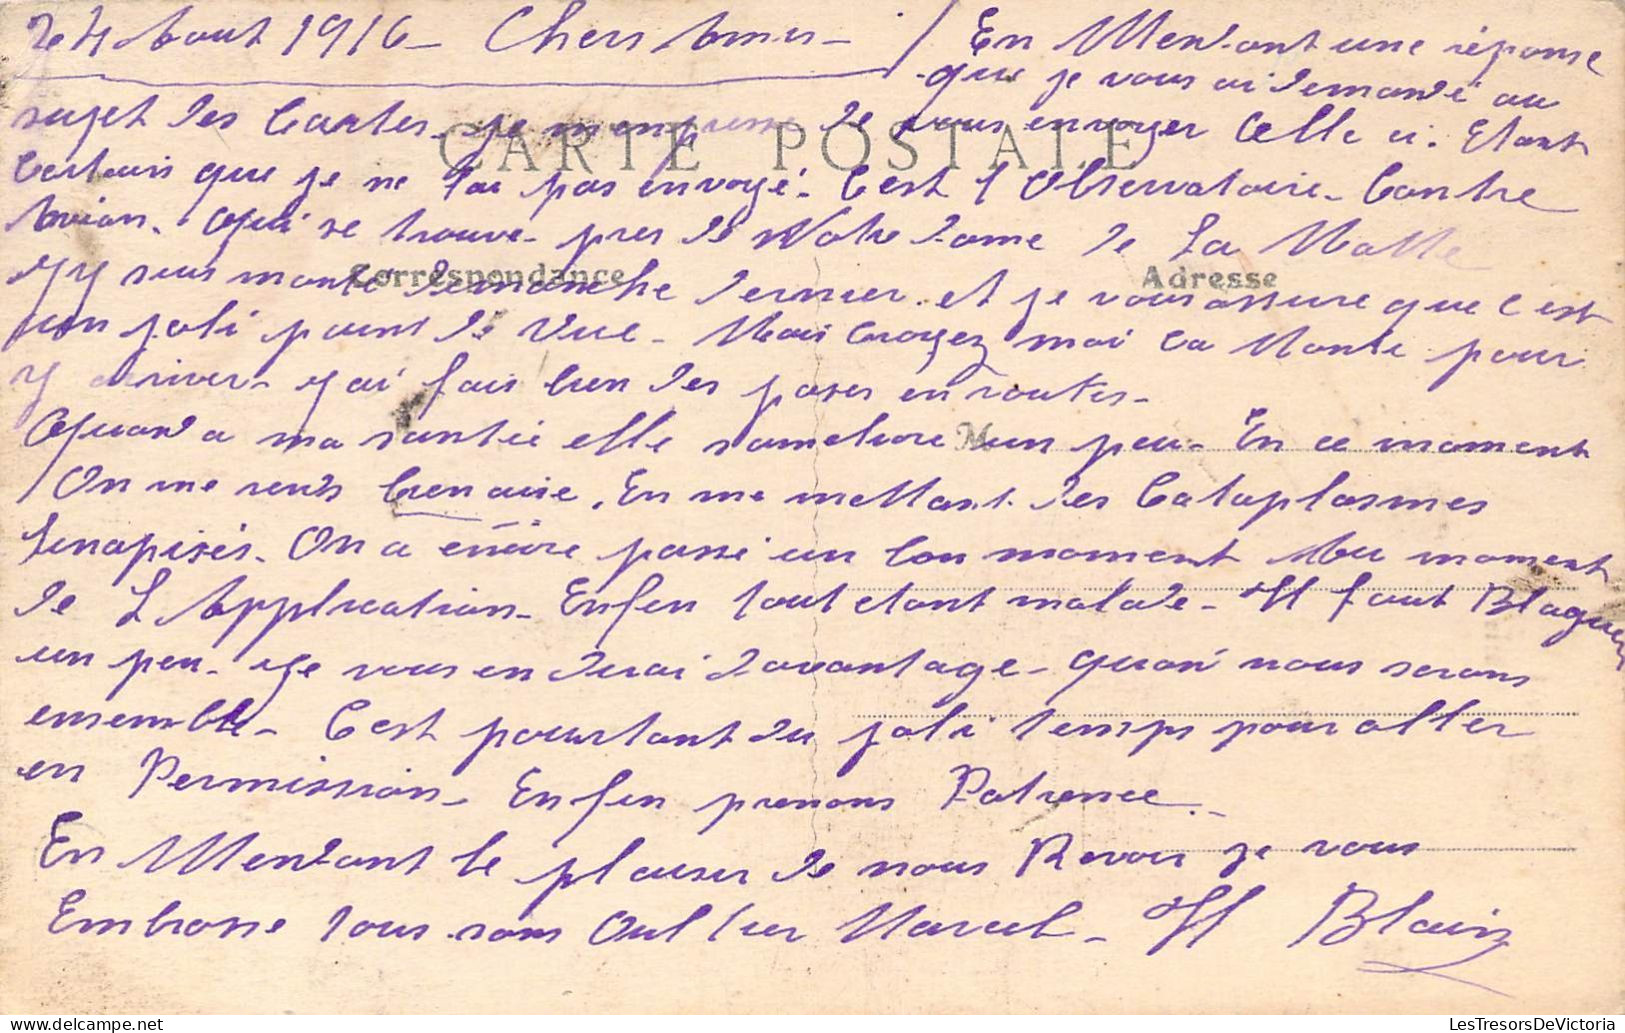 24 Aout 1916 - Chers Amis -
En Attendant une réponse
que je vous ai demandé au
sujet des Cartes. Je m'empresse de vous envoyer Celle ci. Etant
CARTE POSTALE
Certain que je ne l'ai pas envoyé. C'est l'Observatoire. Contre
Avion. Qui se trouve près de Notre dame de La
J'y suis monté Dimanche dernier. et je vous assure que c'est
Correspondance
Adresse
un joli point de vue. Mais Croyez moi ca Monte pour
y arriver. j'ai fais bien des poses en routes.
Quand a ma santée elle sameliore un peu. En ce moment
M
On me rends binaire. En me mettant des Cataplasmes
Sinapisés. On a encore passé un bon moment Au moment
de L'Application. Enfin tout etant malade. Il faut Blaguer
un peu. Je vous en dirai davantage. quand nous serons
ensemble. C'est pourtant du joli temps pour aller
en Permission. Enfin prenons Patience.
En Attendant le plaisir de nous Revoir je vous
Embrasse tous sans Oublier Marcel. H Blain
LesTresorsDeVictoria